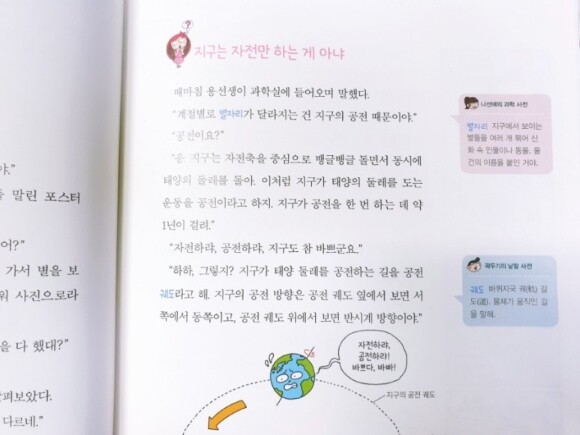 야.”
말린 포스터
어?”
가서 별을 보
사진으로라
을 다 했대?”
펴보았다.
다르네.”
지구는 자전만 하는 게 아냐
때마침 용선생이 과학실에 들어오며 말했다.
“계절별로 별자리가 달라지는 건 지구의 공전 때문이야.”
“공전이요?”
“응. 지구는 자전축을 중심으로 뱅글뱅글 돌면서 동시에
태양의 둘레를 돌아. 이처럼 지구가 태양의 둘레를 도는
운동을 공전이라고 하지. 지구가 공전을 한 번 하는 데 약
1년이 걸려.”
“자전하랴, 공전하랴, 지구도 참 바쁘군요.”
“하하, 그렇지? 지구가 태양 둘레를 공전하는 길을 공전
궤도라고 해. 지구의 공전 방향은 공전 궤도 옆에서 보면 서
쪽에서 동쪽이고, 공전 궤도 위에서 보면 반시계 방향이야.”
자전하랴,
공전하랴!
바쁘다, 바빠!
지구의 공전 궤도
나선애의 과학 사전
별자리 지구에서 보이는
별들을 여러 개 묶어 신
화 속 인물이나 동물, 물
건의 이름을 붙인 거야.
곽두기의 낱말 사전
궤도 바퀴자국 궤(軌) 길
도(道). 물체가 움직인 길
을 말해.